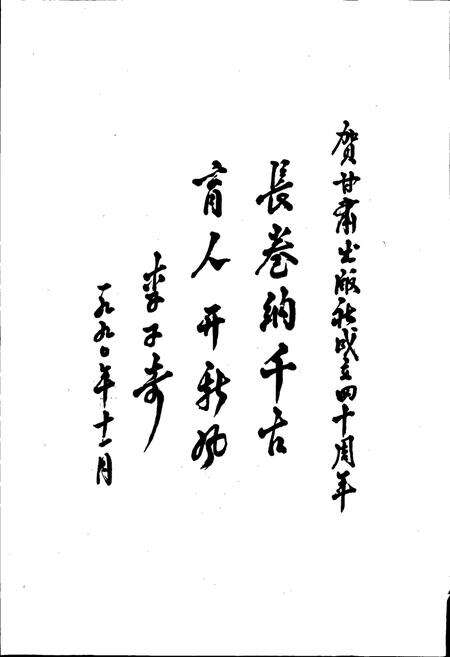 贺甘肃出版社成立四十周年
長卷纳千古
育人开新风
李子奇
一九九〇年十一月